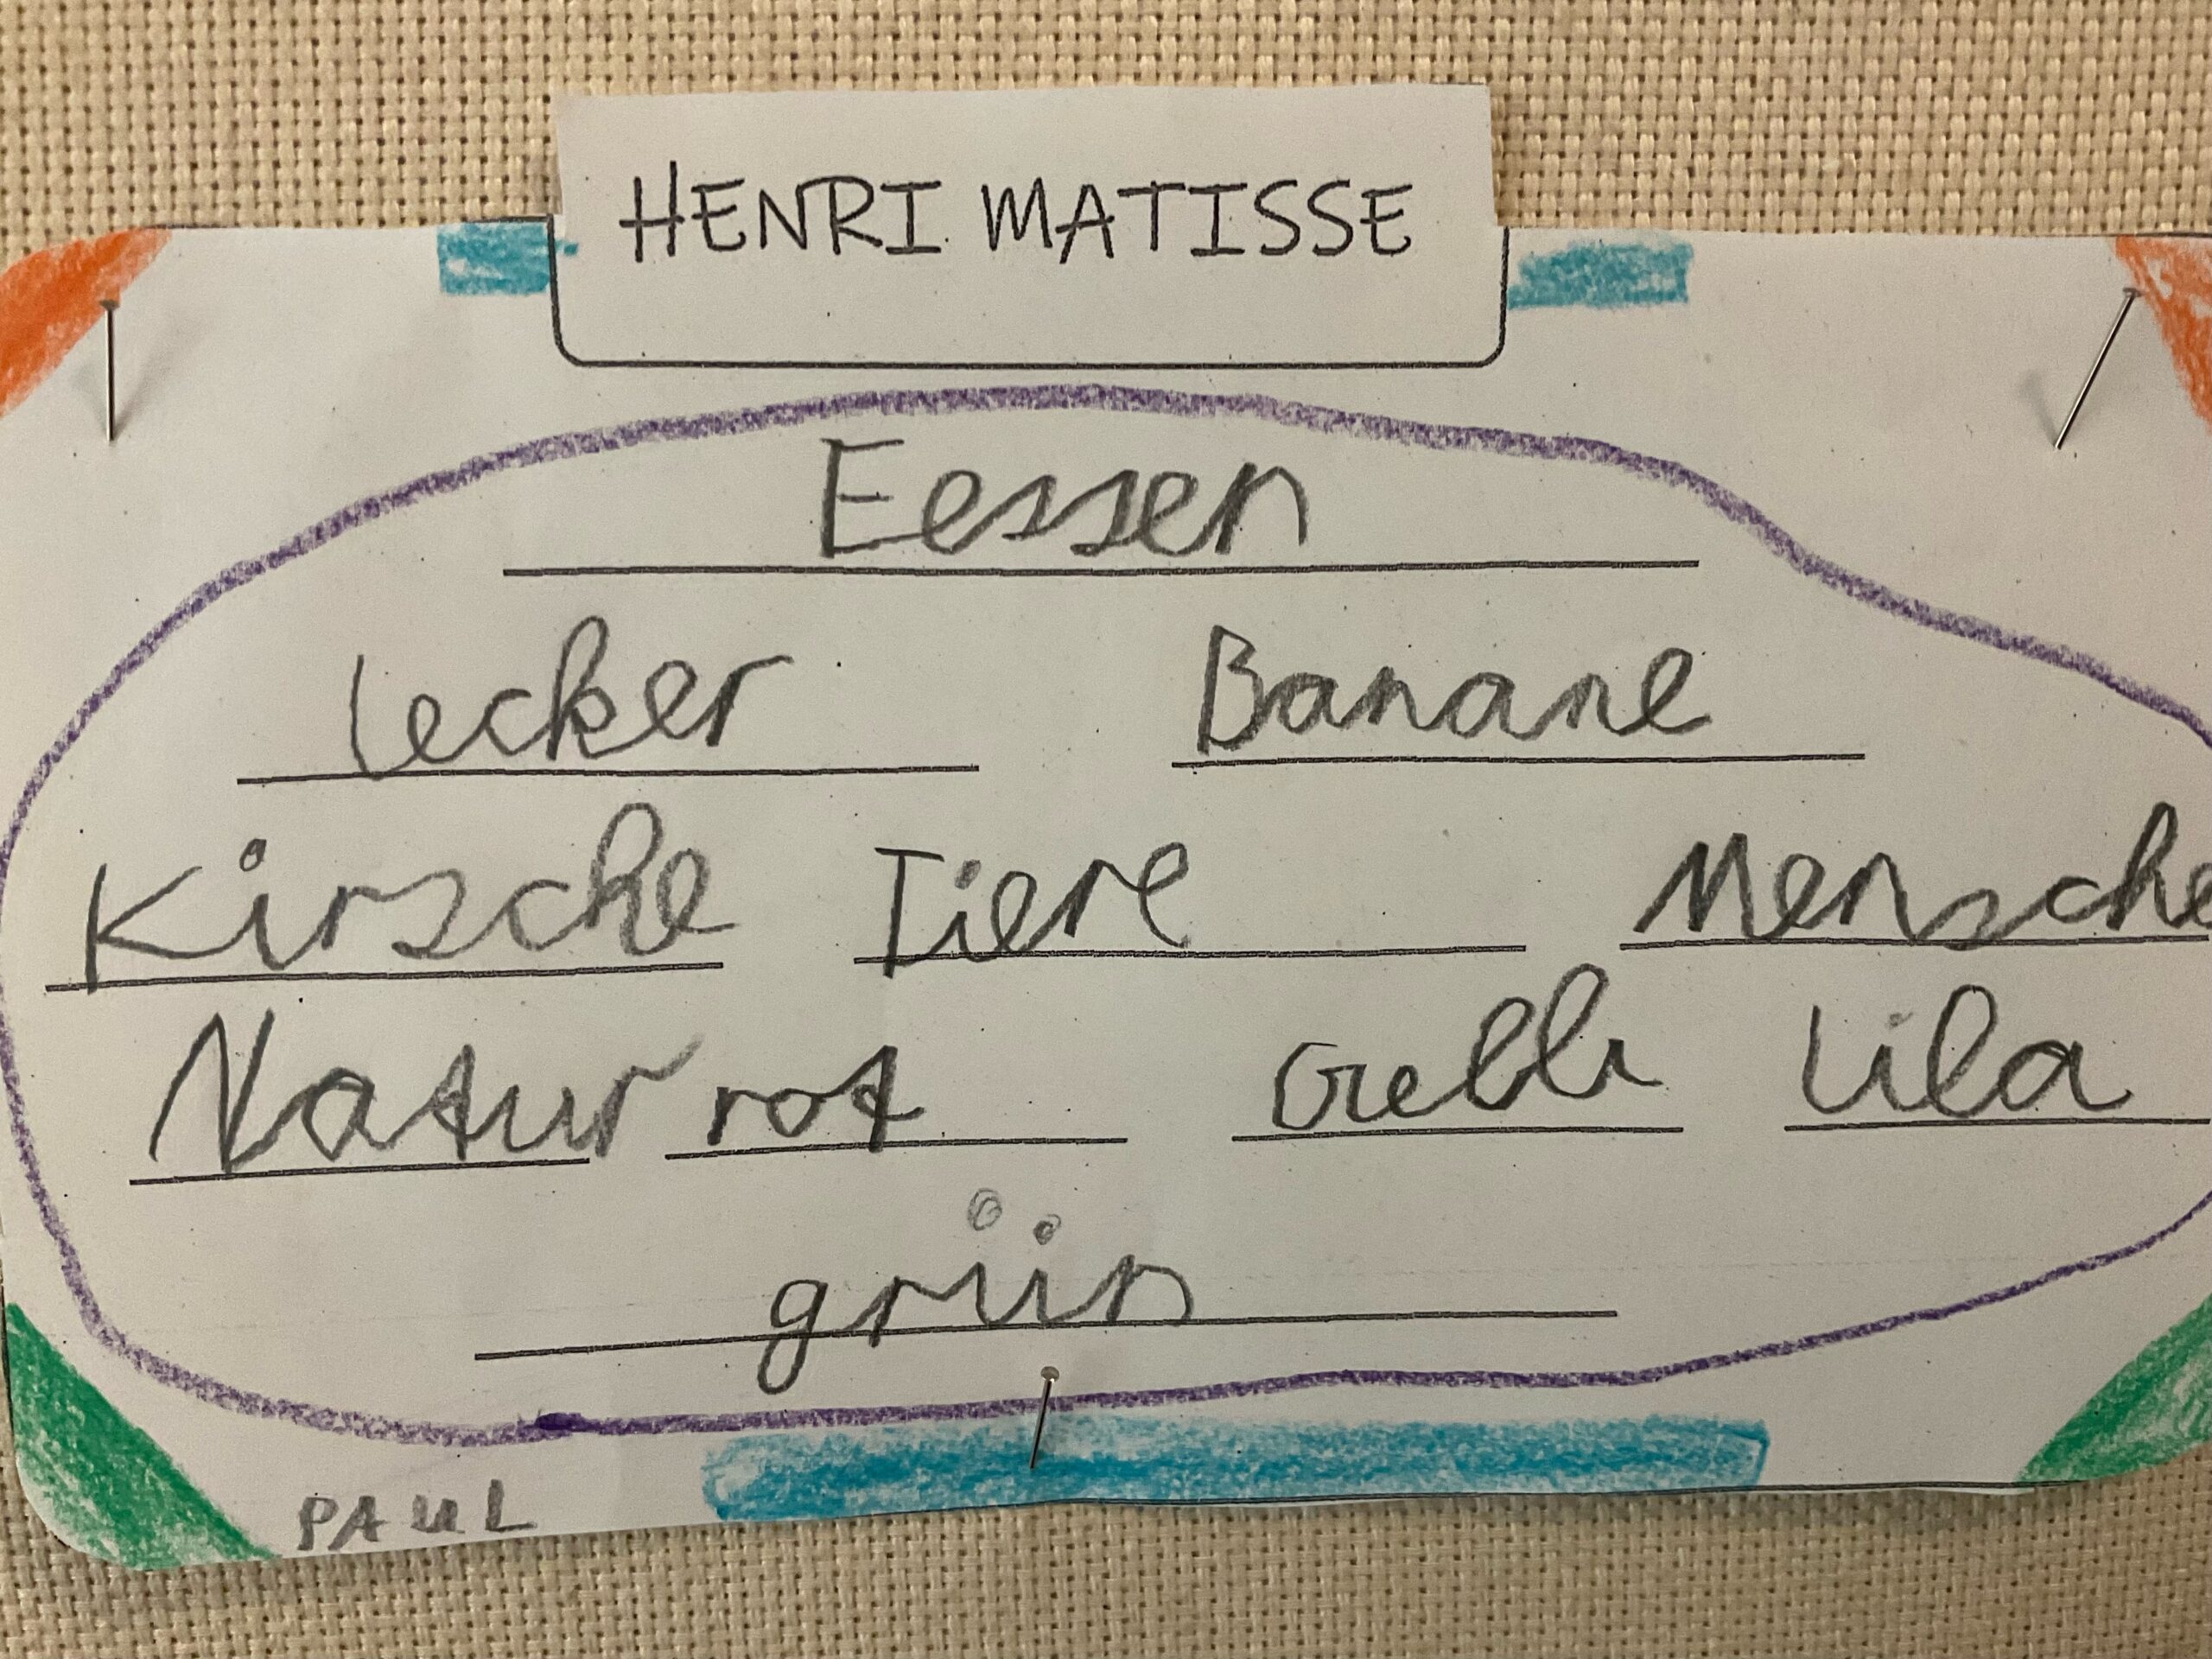 HENRI MATISSE
Eessen
lecker Banane
Kirsche Tiere Mensche
Natur rot Gelb lila
grün
PAUL